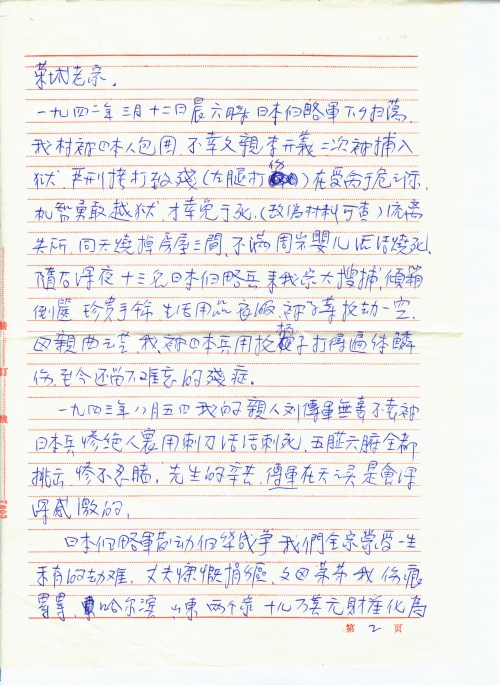 荣林老宗。
一九四二年三月十二日晨六時日本侵略軍下乡扫蕩,
我村被日本人包囲 不幸父親李元義二次被捕入
狱. 严刑拷打致殘(左腿打伤)在受命于危之际,
机智勇敢越狱.才幸免于死.(敌伪材料可查)流离
失所.同天燒掉房屋三間.不滿周岁嬰儿活活燒死.
随后深夜十三名日本侵略兵来我家大搜捕.傾箱
倒匣 珍贵手飾 生活用品 衣服.被子等抢劫一空.
母親曲元芝.我.被日本兵用枪托子打得遍体鱗
伤.至今还留下难忘的殘症。
一九四三年八月五日我的親人刘傳軍無辜不幸被
日本兵惨绝人寰用刺刀活活刺死.五臟六腑全都
挑出 惨不忍睹。先生的辛苦.傳軍在天之灵是會深
深感激的。
日本侵略軍发动侵华战争我們全家蒙受一生
未有的劫难.丈夫慷慨捐躯.父母荣芬我伤痕
累累.哈尔濱 山東 两个家十几万萬元财產化為
第2页
装
订
线
7803